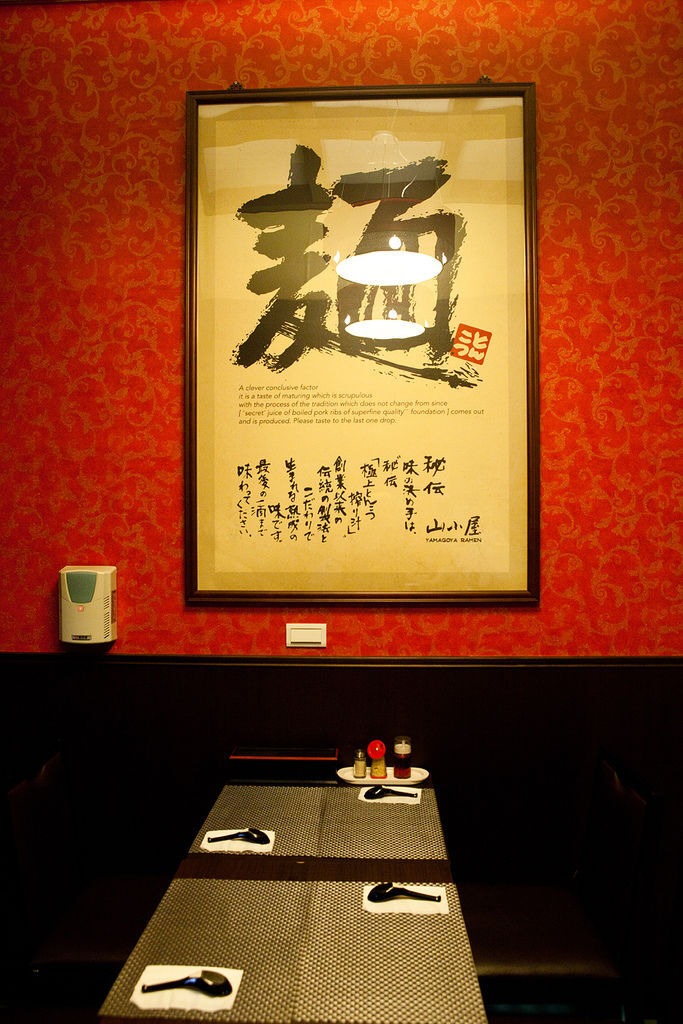 麺
とんこつ
A clever conclusive factor
it is a taste of maturing which is scrupulous
with the process of the tradition which does not change from since
[ "secret" juice of boiled pork ribs of superfine quality" foundation ] comes out
and is produced. Please taste to the last one drop.
秘伝
味の決め手は、
秘伝
「極上とんこつ
搾り汁」
創業以来の
伝統の製法と
こだわりで
生まれる熟成の
味です。
最後の一滴まで
味わってください。
山小屋
YAMAGOYA RAMEN